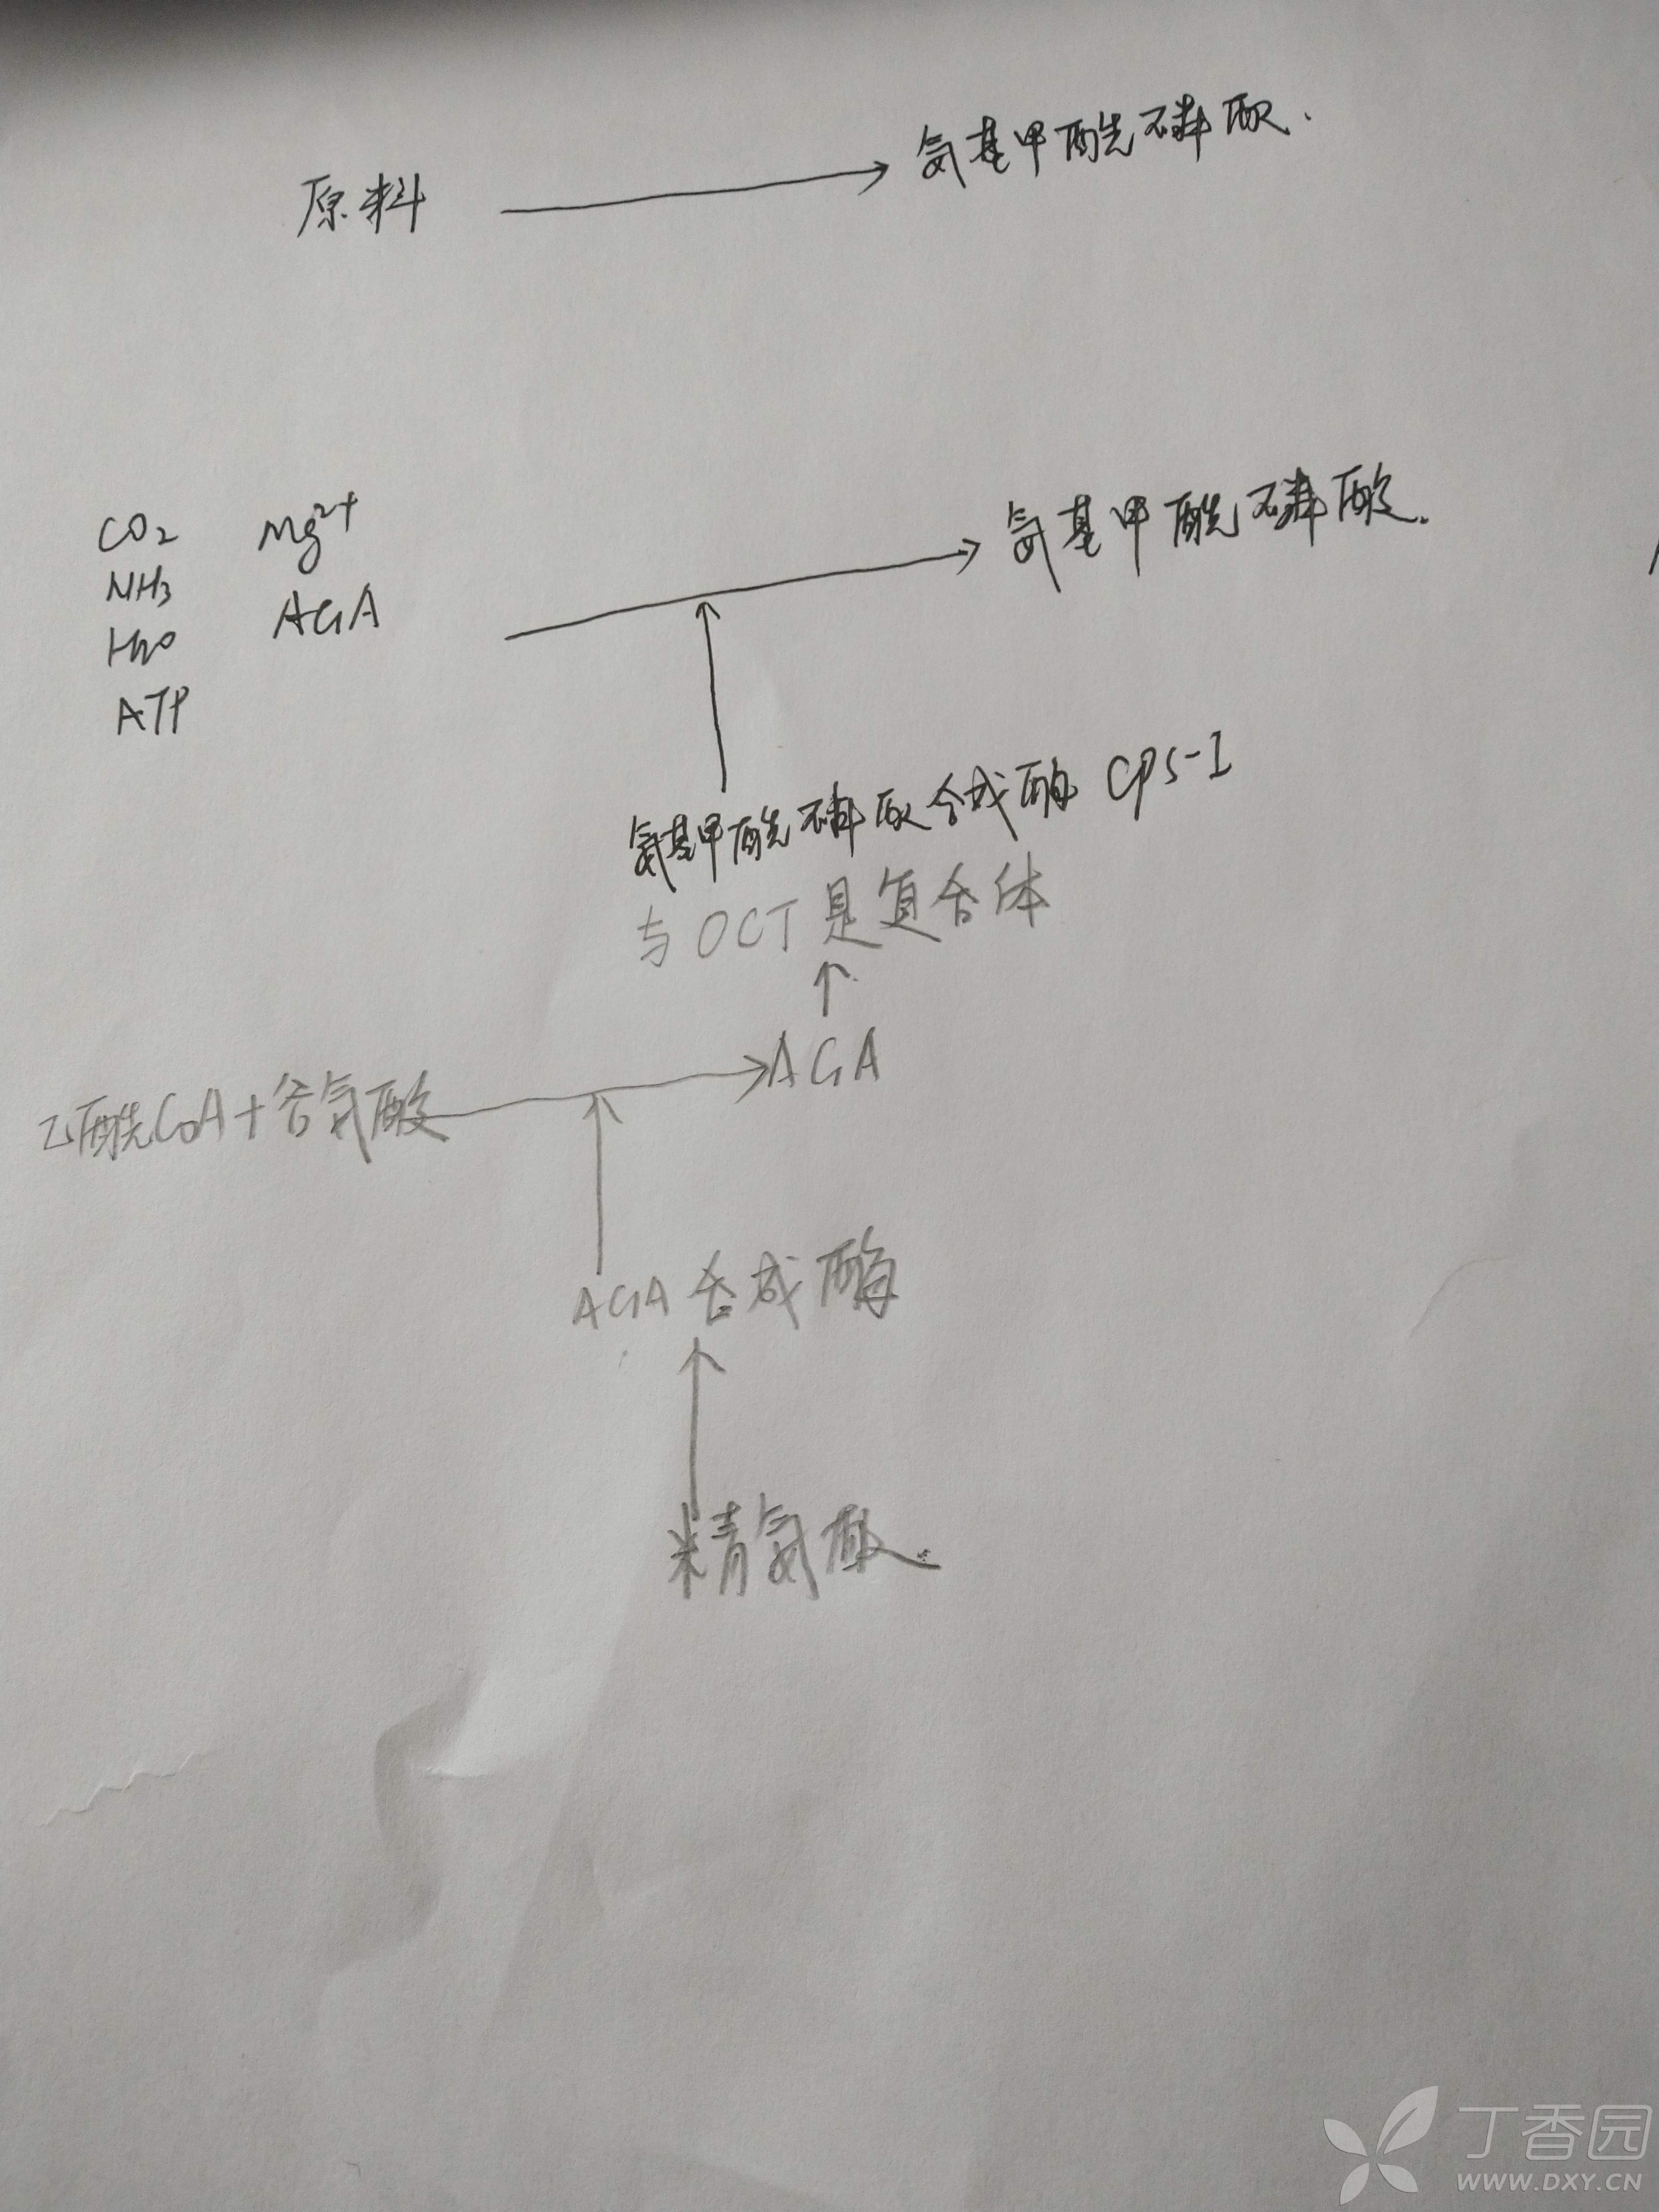 原料 → 氨基甲酰磷酸.
CO2 Mg2+
NH3 AGA
H2O
ATP
→ 氨基甲酰磷酸.
↑
氨基甲酰磷酸合成酶 CPS-I
与OCT是复合体
↑
乙酰CoA+谷氨酸 → AGA
↑
AGA合成酶
↑
精氨酸.
丁香园
WWW.DXY.CN